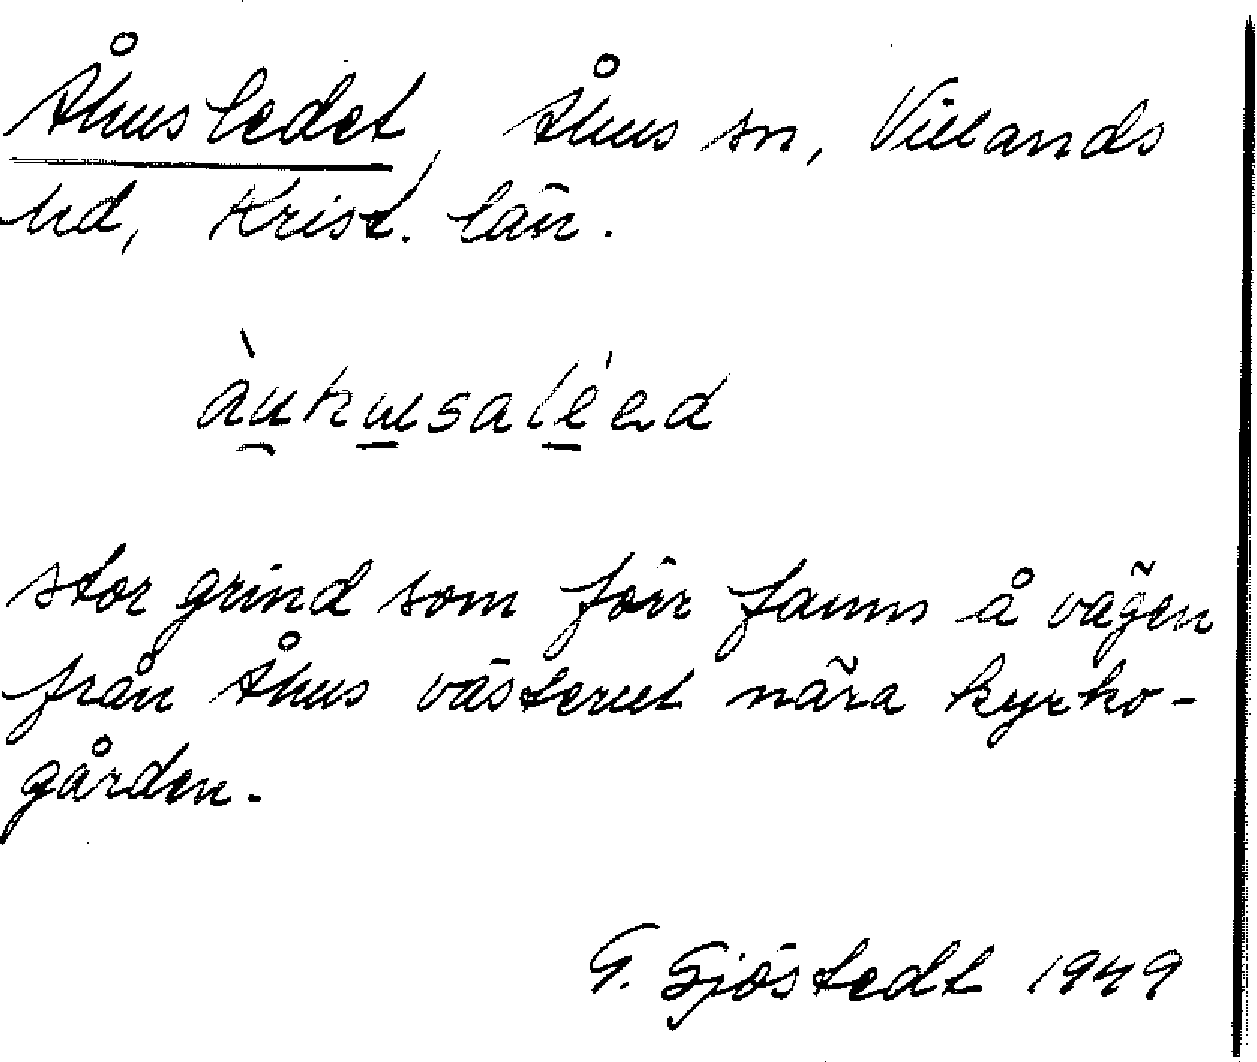 Åhusledet, Åhus sn, Villands
hd, Krist. län.
stor grind som förr fanns å vägen
från Åhus västerut nära kyrko-
gården.
G. Sjöstedt 1949